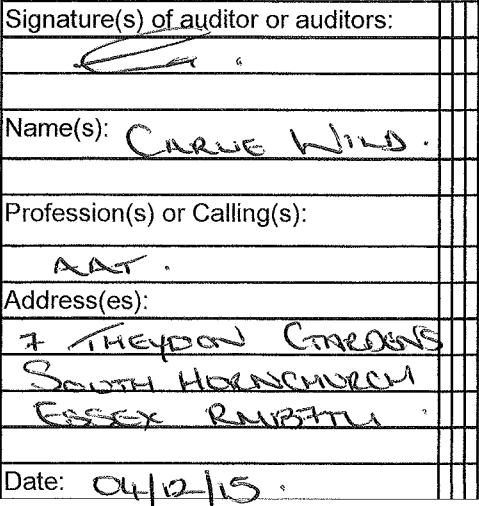 Signature(s) of auditor or auditors:
Name(s): CARLIE WILD.
Profession(s) or Calling(s):
AAT.
Address(es):
7 THEYDON GARDENS
SOUTH HORNCHURCH
ESSEX RM137TU
Date: 04/12/15.